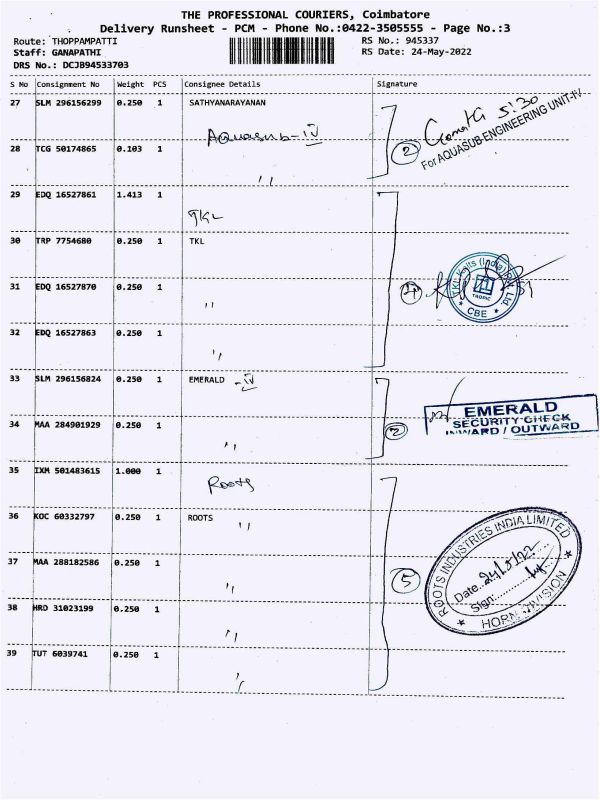 THE PROFESSIONAL COURIERS, Coimbatore
Delivery Runsheet - PCM - Phone No.:0422-3505555 - Page No.:3
Route: THOPPAMPATTI RS No.: 945337
Staff: GANAPATHI RS Date: 24-May-2022
DRS No.: DCJB94533703
S No Consignment No Weight PCS Consignee Details Signature
27 SLM 296156299 0.250 1 SATHYANARAYANAN
Aquasub-IV
5:30
2
For AQUASUB ENGINEERING UNIT-IV
28 TCG 50174865 0.103 1
"
29 EDQ 16527861 1.413 1
TKL
30 TRP 7754680 0.250 1 TKL
31 EDQ 16527870 0.250 1
"
4
TKL Knits (India) Pvt. Ltd.
TADPIC
★ CBE ★
32 EDQ 16527863 0.250 1
"
33 SLM 296156824 0.250 1 EMERALD -IV
34 MAA 284901929 0.250 1
"
2
EMERALD
SECURITY CHECK
INWARD / OUTWARD
35 IXM 501483615 1.000 1
Roots
36 KOC 60332797 0.250 1 ROOTS
"
37 MAA 288182586 0.250 1
"
5
ROOTS INDUSTRIES INDIA LIMITED
Date: 24/5/22
Sign:
★ HORN DIVISION ★
38 HRD 31023199 0.250 1
"
39 TUT 6039741 0.250 1
"